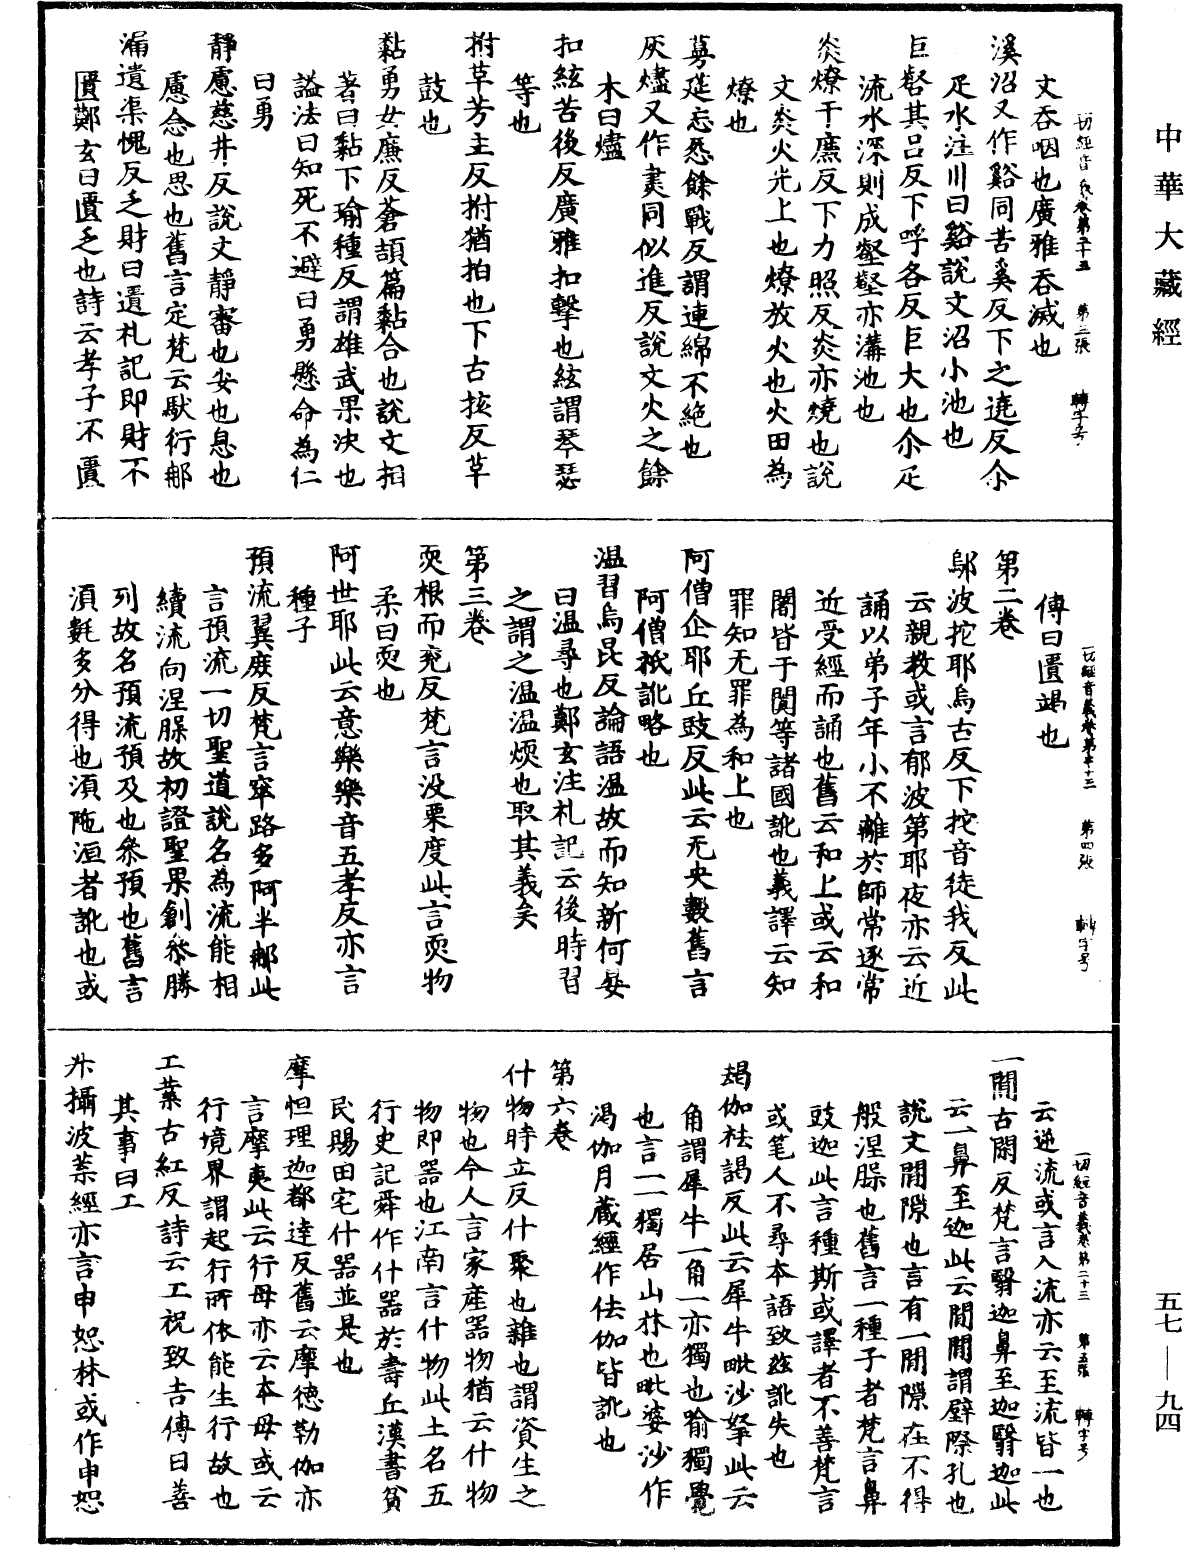 中華大藏經
一切經音義卷第二十三 第三張 轉字号
文吞咽也廣雅吞滅也
溪沼又作谿同苦奚反下之遶反尒
疋水注川曰谿說文沼小池也
巨壑其呂反下呼各反巨大也尒疋
流水深則成壑壑亦溝池也
炎燎干廉反下力照反炎亦燒也說
文炎火光上也燎放火也火田為
燎也
蔓莚忘怒餘戰反謂連綿不絕也
灰燼又作㶳同似進反說文火之餘
木曰燼
扣絃苦後反廣雅扣擊也絃謂琴瑟
等也
拊草芳主反拊猶拍也下古核反草
鼓也
黏勇女廉反蒼頡篇黏合也說文相
著曰黏下瑜種反謂雄武果決也
謚法曰知死不避曰勇懸命為仁
曰勇
靜慮慈井反說文靜審也安也息也
慮念也思也舊言定梵云馱衍那
漏遺渠愧反乏財曰遺札記即財不
匱鄭玄曰匱乏也詩云孝子不匱
一切經音義卷第二十三 第四張 轉字号
傳曰匱竭也
第二卷
鄔波挓耶烏古反下挓音徒我反此
云親教或言郁波第耶夜亦云近
誦以弟子年小不離於師常逐常
近受經而誦也舊云和上或云和
闍皆于闐等諸國訛也義譯云知
罪知无罪為和上也
阿僧企耶丘豉反此云无央數舊言
阿僧祇訛略也
温習烏昆反論語温故而知新何晏
曰温尋也鄭玄注札記云後時習
之謂之温温煗也取其義矣
第三卷
耎根而兗反梵言没栗度此言耎物
柔曰耎也
阿世耶此云意樂樂音五孝反亦言
種子
預流翼庶反梵言窣路多阿半那此
言預流一切聖道說名為流能相
續流向涅槃故初證聖果創叅勝
列故名預流預及也叅預也舊言
湏氀多分得也湏陁洹者訛也或
一切經音義卷第二十三 第五張 轉字号
云逆流或言入流亦云至流皆一也
一閒古閑反梵言翳迦鼻至迦翳迦此
云一鼻至迦此云閒閒謂壁際孔也
說文閒隙也言有一閒隙在不得
般涅槃也舊言一種子者梵言鼻
豉迦此言種斯或譯者不善梵言
或笔人不尋本語致兹訛失也
朅伽袪謁反此云犀牛毗沙拏此云
角謂犀牛一角一亦獨也喻獨覺
也言一一獨居山林也毗婆沙作
渴伽月藏經作佉伽皆訛也
第六卷
什物時立反什聚也雜也謂資生之
物也今人言家產器物猶云什物
物即器也江南言什物此土名五
行史記舜作什器於壽丘漢書貧
民賜田宅什器並是也
摩怛理迦都達反舊云摩德勒伽亦
言摩夷此云行母亦云本母或云
行境界謂起行所依能生行故也
工業古紅反詩云工祝致吉傳曰善
其事曰工
㭊攝波葉經亦言申恕林或作申恕
五七—九四